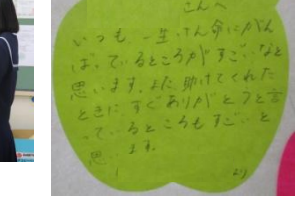 さんへ
いつも一生けん命にがん
ばっているところがすごいなと
思います。また、助けてくれた
ときにすぐありがとうと言
っているところもすごいと
思います。
より